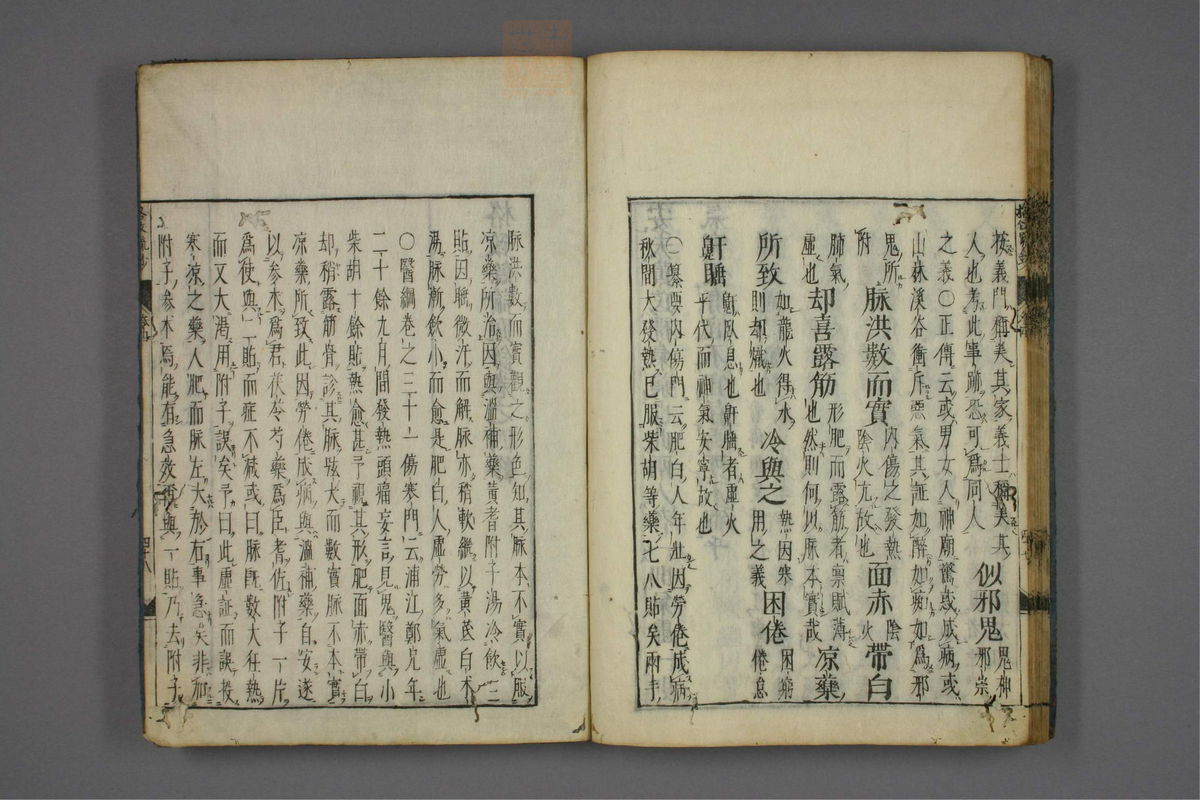 按義門稱美其家義士稱美其
人也考此事跡恐可爲同人 似邪鬼 鬼神邪祟
之義〇正傳云或男女人神廟驚惑成病或
山林溪谷衝斥惡氣其証如醉如痴如爲邪
鬼所附 脉洪數而實 内傷之發熱陰火亢故也 面赤帶白 陰火
肺氣虛也 却喜露筋 形肥而露筋者禀賦薄也然則何以脉本實哉 凉藥
所致 如龍火得水則却熾也 冷與之 熱因寒用之義 困倦 困窮倦怠
鼾睡 鼾臥息也鼾睡者虛火
平代而神氣安寧故也
〇纂要内傷門云肥白人年壯因勞倦成病
秋間大發熱已服柴胡等藥七八貼矣兩手
脉洪數而實觀之形色知其脉本不實以服
凉藥所治因與溫補藥黄耆附子湯冷飲二
貼因睡微汗而解脉亦稍軟繼以黄芪白朮
湯脉漸斂小而愈是肥白人虛勞多氣虛也
〇醫綱卷之三十一傷寒門云浦江鄭兄年
二十餘九月間發熱頭痛妄言見鬼醫與小
柴胡十餘貼熱愈甚予視其形肥面赤帶白
却稍露筋骨診其脉弦大而數實脉不本實
凉藥所致此因勞倦成病與溫補藥自安遂
以參朮爲君茯苓芍藥爲臣耆佐附子一片
爲使與二貼而症不減或曰脉既數大狂熱
而又大渴用附子誤矣予曰此虛証而誤投
寒凉之藥人肥而脉左大於右事急矣非加
附子參朮焉能有急效再與一貼乃去附子
四十八